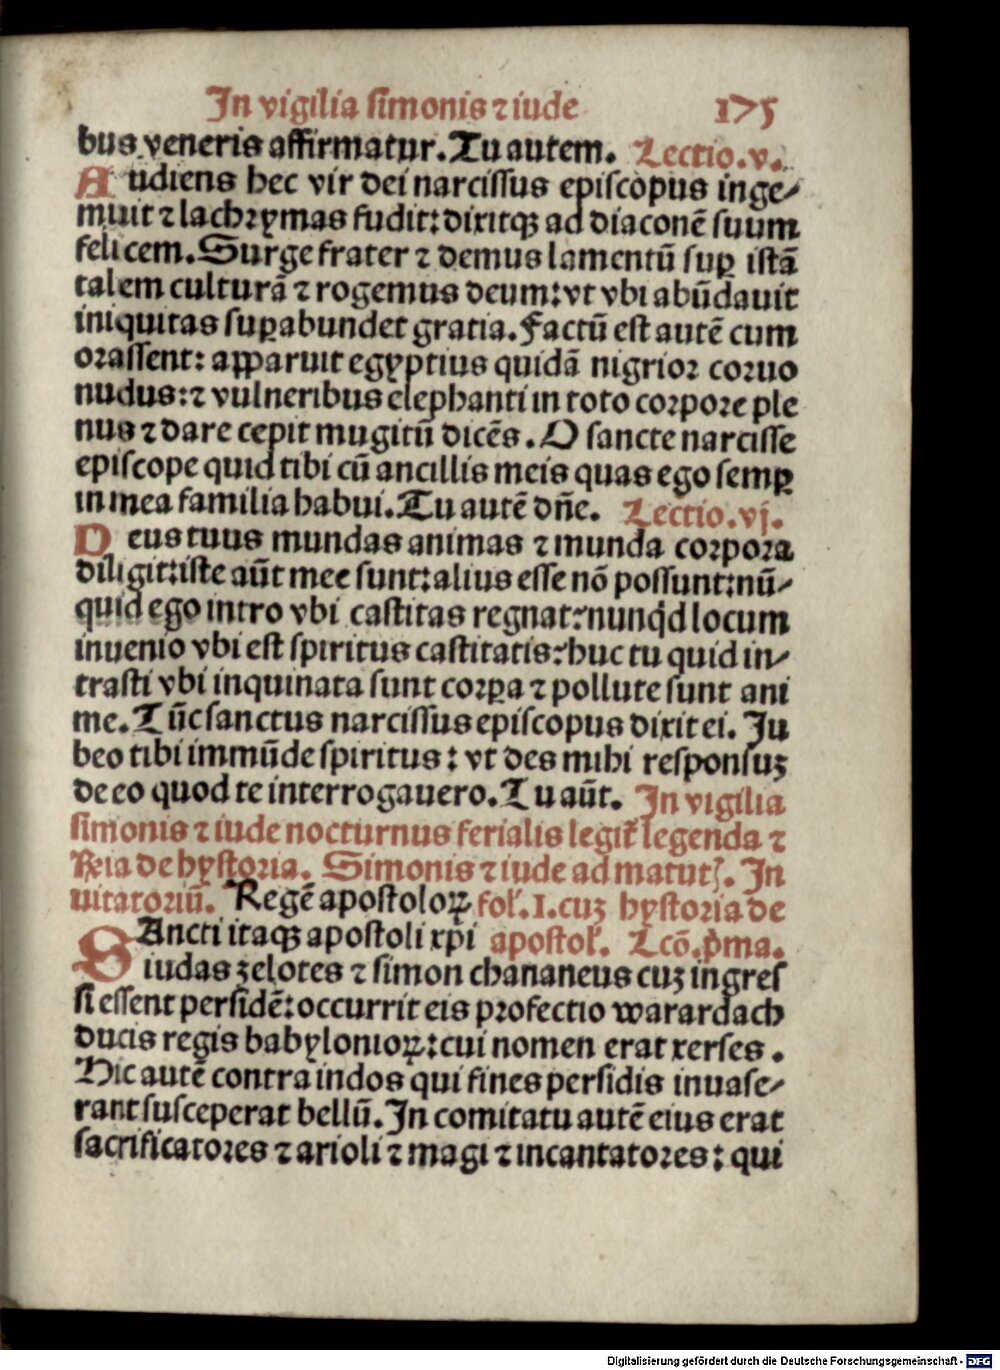 In vigilia simonis ⁊ iude 175
bus veneris affirmatur. Tu autem. Lectio .v.
Audiens hec vir dei narcissus episcopus inge⸗
muit ⁊ lachrymas fudit: dixitqꝫ ad diaconē suum
felicem. Surge frater ⁊ demus lamentū suꝑ istā
talem culturā ⁊ rogemus deum: vt vbi abūdauit
iniquitas suꝑabundet gratia. Factū est autē cum
orassent: apparuit egyptius quidā nigrior coruo
nudus: ⁊ vulneribus elephanti in toto corpore ple
nus ⁊ dare cepit mugitū dicēs. O sancte narcisse
episcope quid tibi cū ancillis meis quas ego semꝑ
in mea familia habui. Tu autē dñe. Lectio .vj.
Deus tuus mundas animas ⁊ munda corpora
diligit: iste aūt mee sunt: alius esse nō possunt: nū⸗
quid ego intro vbi castitas regnat: nunqͥd locum
inuenio vbi est spiritus castitatis: huc tu quid in⸗
trasti vbi inquinata sunt corꝑa ⁊ pollute sunt ani
me. Tūc sanctus narcissus episcopus dixit ei. Ju
beo tibi immūde spiritus: vt des mihi responsuꝫ
de eo quod te interrogauero. Tu aūt. In vigilia
simonis ⁊ iude nocturnus ferialis legit̄ legenda ⁊
℟ria de hystoria. Simonis ⁊ iude ad matutꝭ. In
uitatoriū. Regē apostoloꝝ fol̄. 1. cuꝫ hystoria de
SAncti itaqꝫ apostoli xp̄i apostol̄. Lcō. p̄ma.
iudas zelotes ⁊ simon chananeus cuꝫ ingres
si essent persidē: occurrit eis profectio warardach
ducis regis babylonioꝝ: cui nomen erat xerses.
Hic autē contra indos qui fines persidis inuase⸗
rant susceperat bellū. In comitatu autē eius erat
sacrificatores ⁊ arioli ⁊ magi ⁊ incantatores: qui
Digitalisierung gefördert durch die Deutsche Forschungsgemeinschaft - DFG